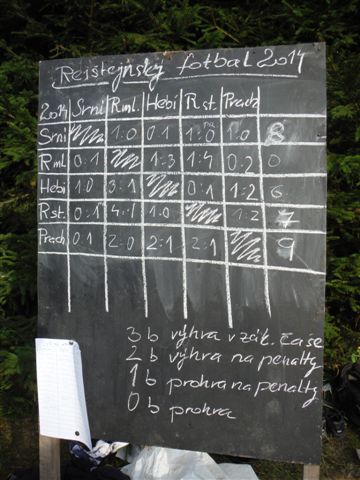 Rejštejnský fotbal 2014
2014 Srni Rml. Hebi R st. Prach
Srni 1:0 0:1 1:0 1:0 8
R ml. 0:1 1:3 1:4 0:2 0
Hebi 1:0 3:1 0:1 1:2 6
R st. 0:1 4:1 1:0 1:2 7
Prach 0:1 2:0 2:1 2:1 9
3 b výhra v zák. čase
2 b výhra na penalty
1 b prohra na penalty
0 b prohra